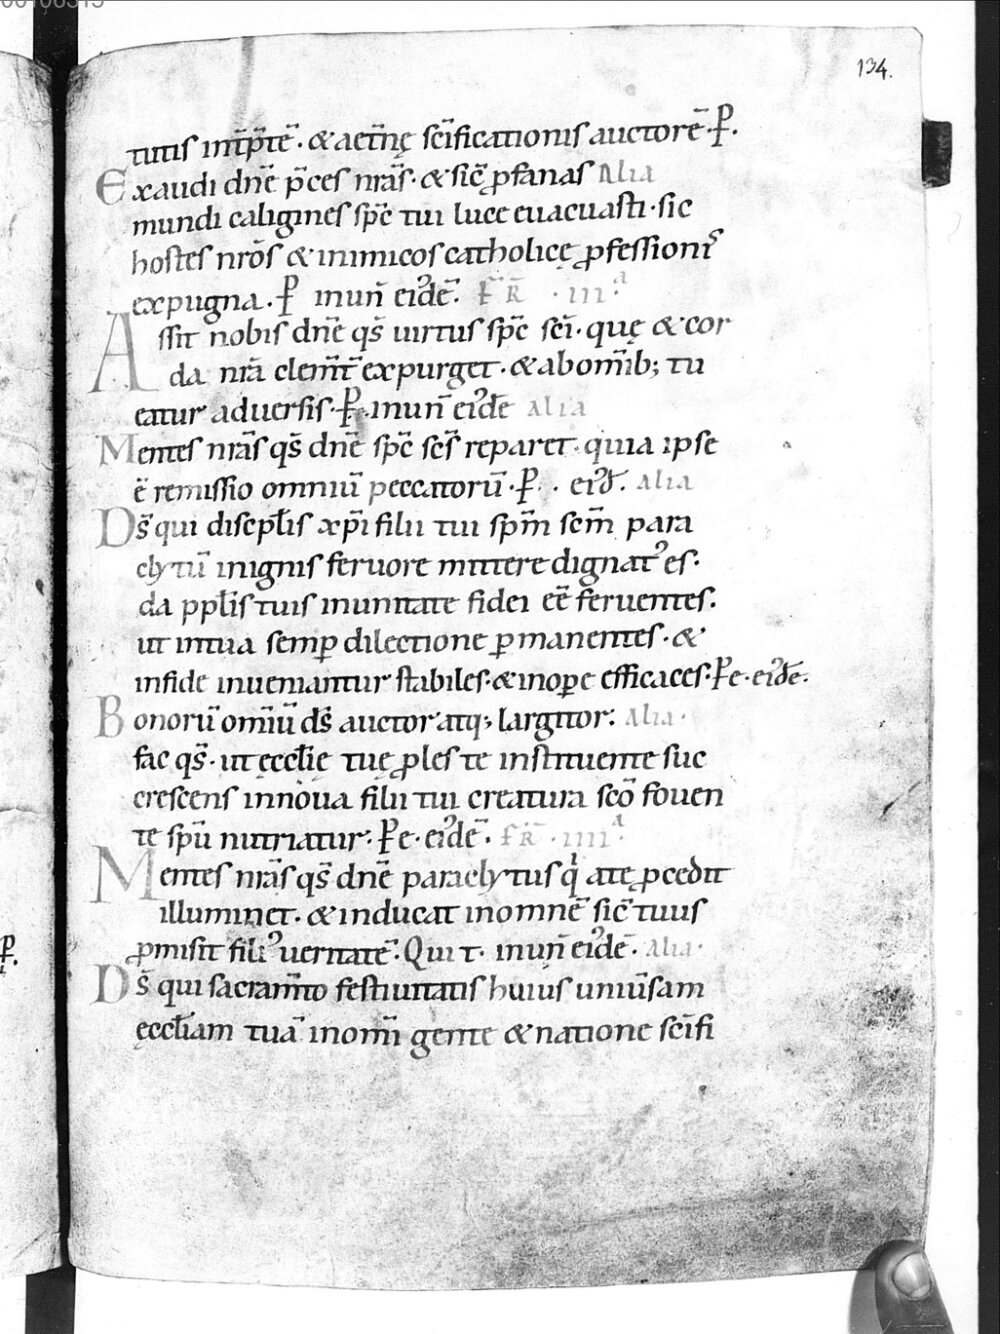 134.
tutis int̄p̄tē · & aet̄nę sc̄ificationis auctorē · P̄.
Exaudi dn̄e p̄ces nr̄as · & sic̄ ꝓfanas Alia
mundi caligines sp̄c tui luce euacuasti · sic
hostes nr̄os & inimicos catholicę ꝓfessionis
expugna · P̄ inun̄ eidē. FR̄ · III ᵃ
Assit nobis dn̄e qs̄ uirtus sp̄c sc̄i · quę & cor
da nr̄a clem̄t̄ expurget · & abom̄ib; tu
eatur aduersis · P̄ · inun̄ eidē Alia
Mentes nr̄as qs̄ dn̄e sp̄c sc̄s reparet · quia ipse
ē remissio omniū peccatorū · P̄ · eid̄. Alia
Ds̄ qui discipl̄is xp̄i filii tui sp̄m sc̄m para
clytū inignis feruore mittere dignatꝰ es ·
da ppl̄is tuis inunitate fidei eē feruentes.
ut intua semꝑ dilectione ꝑmanentes · &
infide inueniantur stabiles · & inoꝑe efficaces · P̄e · eidē.
Bonorū omīū ds̄ auctor atq; largitor. Alia ·
fac qs̄ · ut ęccl̄ię tuę ꝓles te instituente suc
crescens innoua filii tui creatura sc̄o fouen
te sp̄u nutriatur · P̄e · eidē · FR̄ · IIII ᵃ
Mentes nr̄as qs̄ dn̄e paraclytus qͥ ate ꝓcedit
illuminet · & inducat inomnē sic̄ tuus
ꝓmisit filiꝰ ueritatē · Qui t · inun̄ eidē · Alia ·
Ds̄ qui sacram̄to festiuitatis huius uniūsam
ęccl̄iam tuā inomī gente & natione sc̄ifi